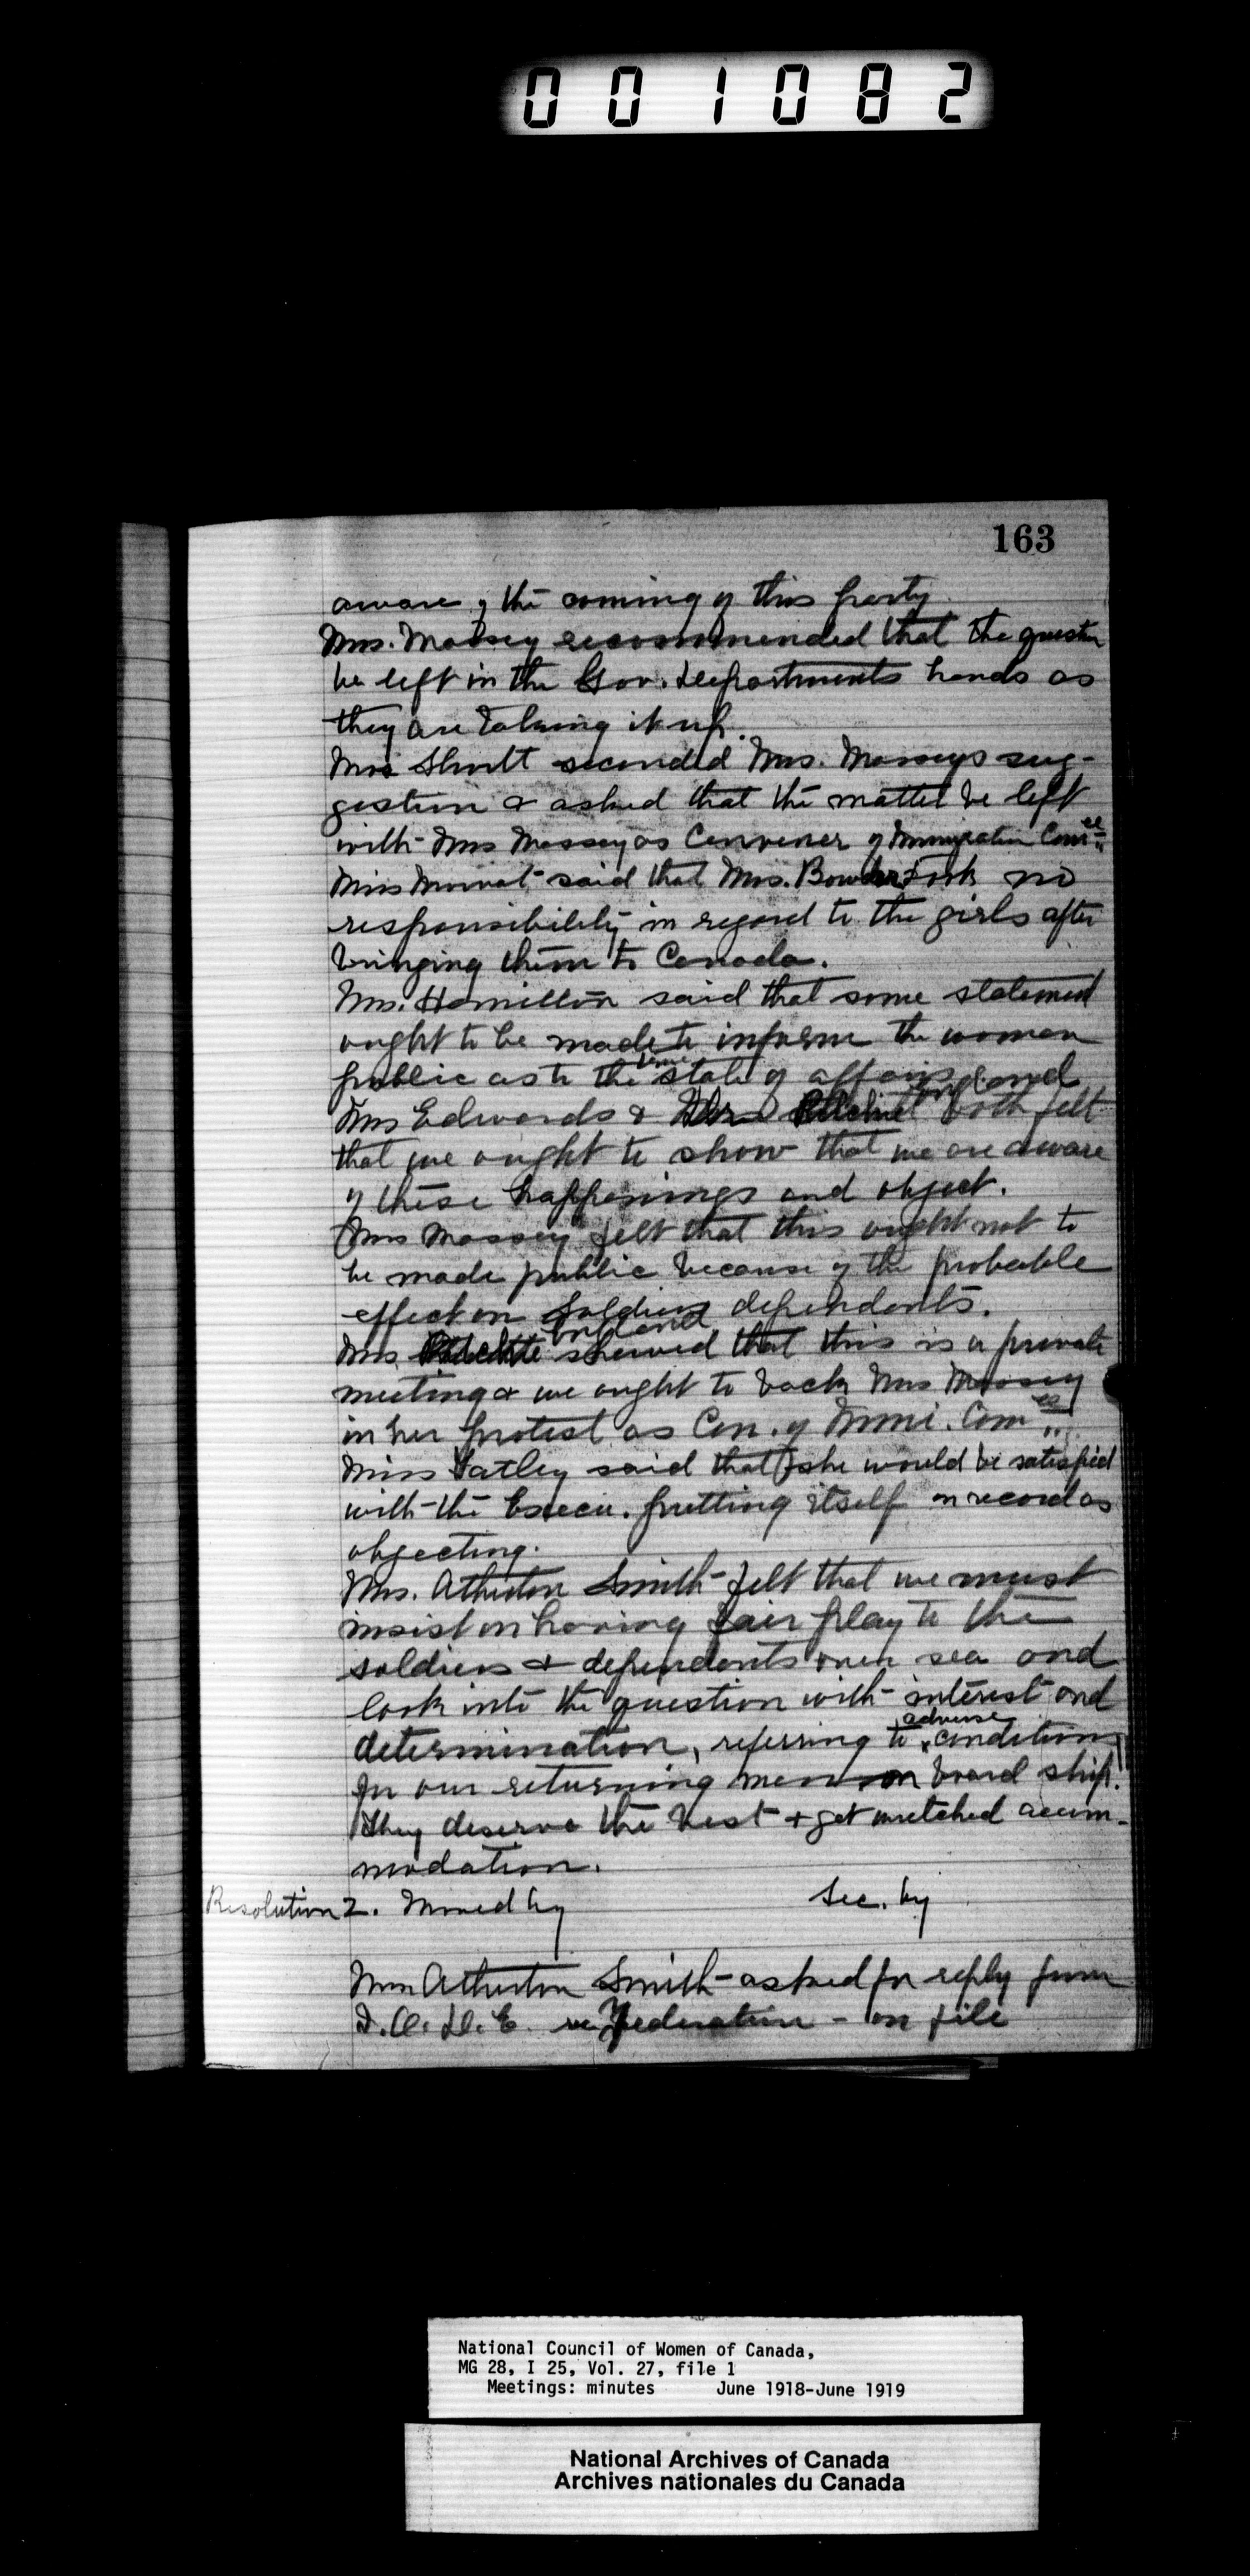 001082
163
aware of the coming of this party.
Mrs. Massey recommended that the question
be left in the Gov. Departments hands as
they are taking it up.
Mrs Shortt seconded Mrs. Masseys sug-
gestion & asked that the matter be left
with Mrs Massey as Convener of Immigration Comee
Miss Mowat said that Mrs. Bowker Fosk no
responsibility in regard to the girls after
bringing them to Canada.
Mrs. Hamilton said that some statement
ought to be made to inform the woman
public as to the state of affairs.
Mrs Edwards & Mrs England both felt
that we ought to show that we are aware
of these happenings and object.
Mrs Massey felt that this ought not to
be made public because of the probable
effect on soldiers dependents.
Mrs England showed that this is a private
meeting & we ought to back Mrs Massey
in her protest as Con. of Immi. Comee
Miss Yatley said that she would be satisfied
with the Execu. putting itself on record as
objecting.
Mrs. Atherton Smith felt that we must
insist on having fair play to the
soldiers & dependents over sea and
look into the question with interest and
determination, referring to adverse conditions
for our returning men on board ship.
They deserve the best + get wretched accom-
modation.
Resolution 2. Moved by Sec. by
Mrs Atherton Smith asked for reply from
I.O.D.E. re Federation - on file
National Council of Women of Canada,
MG 28, I 25, Vol. 27, file 1
Meetings: minutes June 1918-June 1919
National Archives of Canada
Archives nationales du Canada